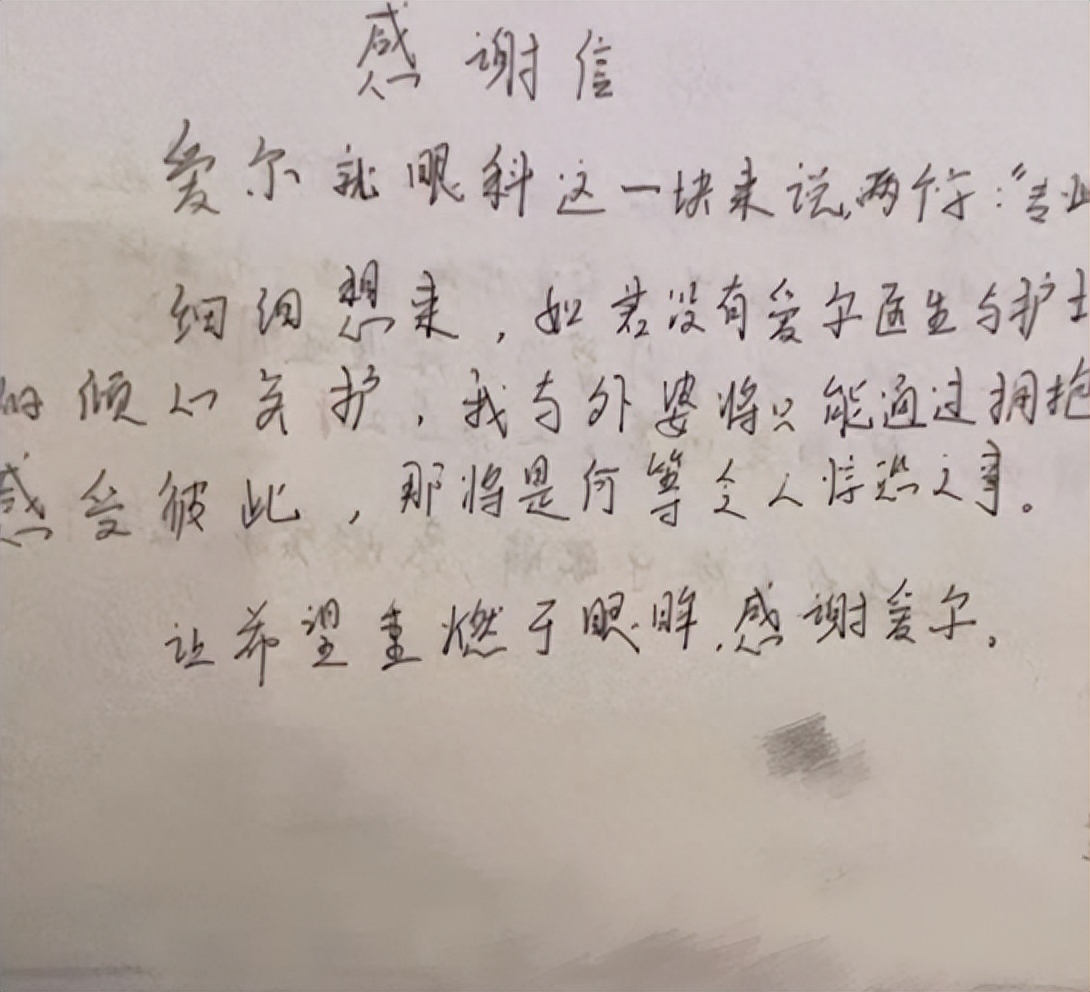 感谢信
爱尔就眼科这一块来说,两个字:“专业
细细想来，如若没有爱尔医生与护士
的倾心关护，我与外婆将只能通过拥抱
感受彼此，那将是何等令人惊恐之事。
让希望重燃于眼眸,感谢爱尔。